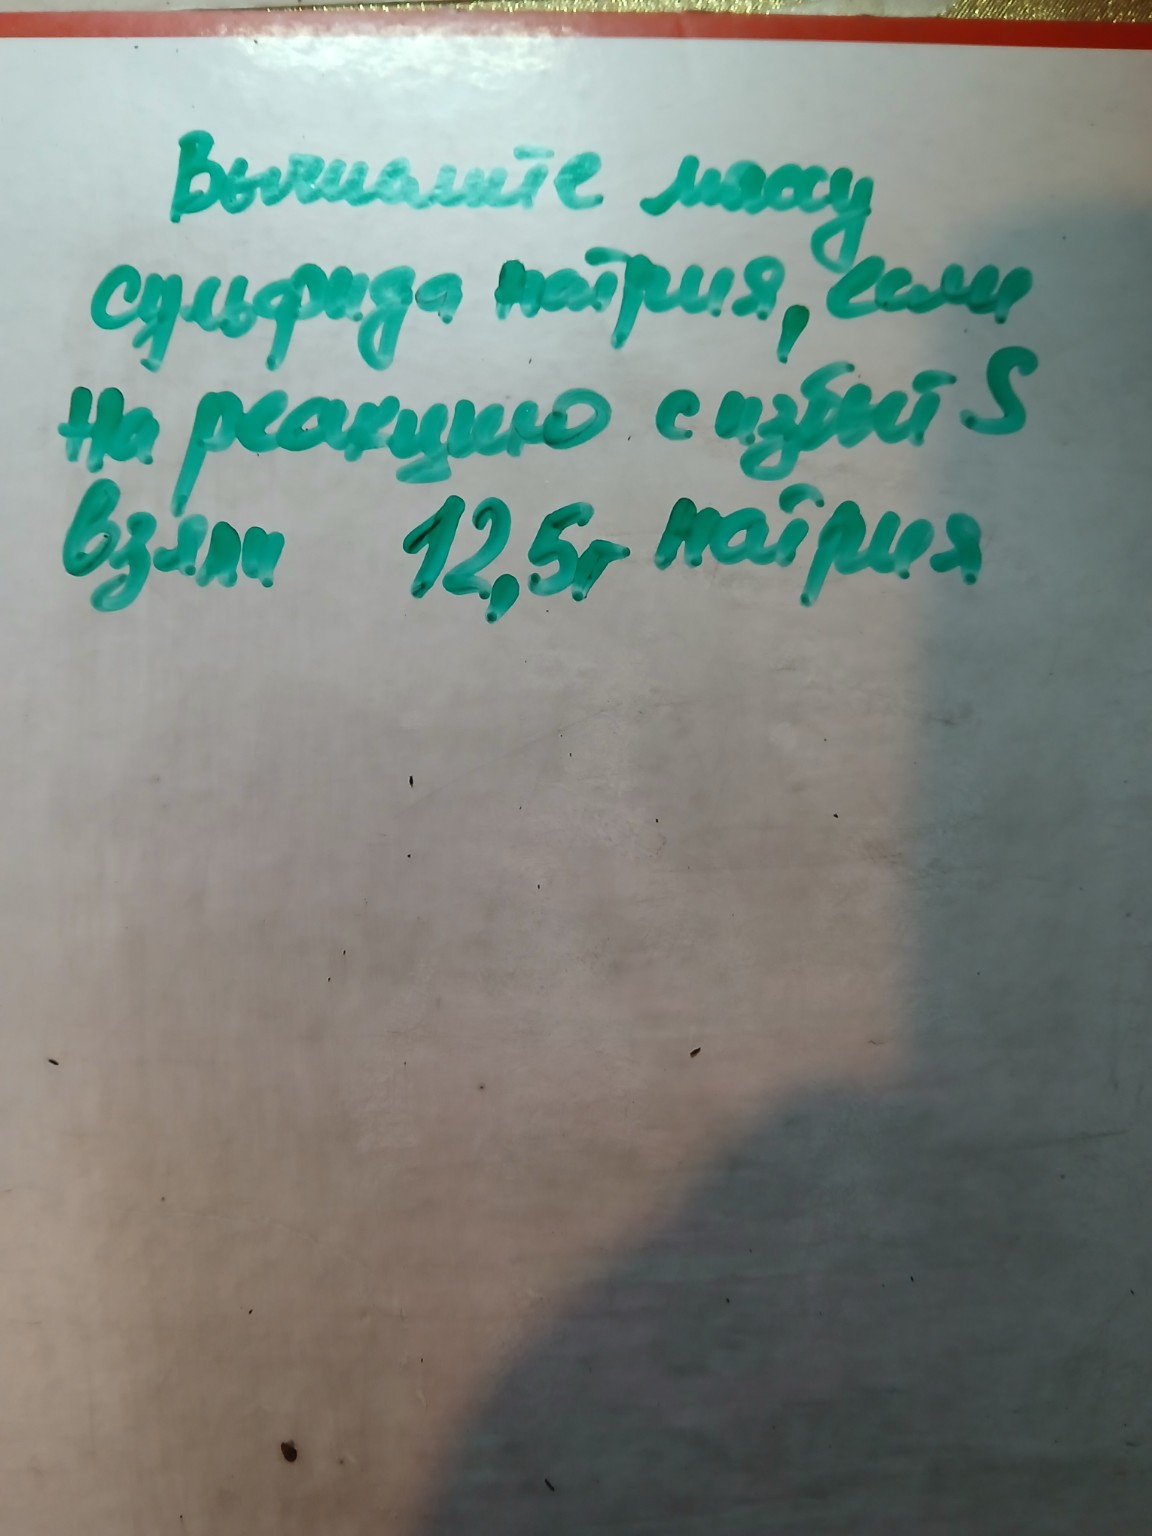 Вычислите массу
сульфида натрия, если
на реакцию с избыт S
взяли 12,5г натрия